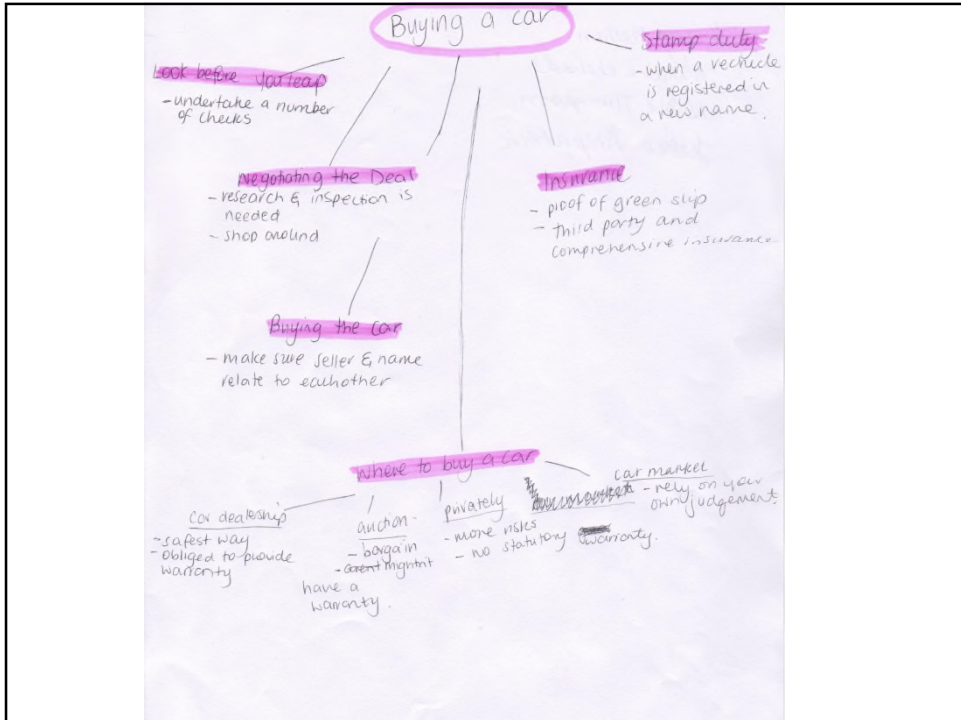 Buying a car
Stamp duty
- when a vechicle
is registered in
a new name.
Look before you leap
- undertake a number
of checks
Negotiating the Deal
- research & inspection is
needed
- shop around
Insurance
- proof of green slip
- third party and
comprehensive insurance
Buying the car
- make sure seller & name
relate to eachother
where to buy a car
car dealership
- safest way
- obliged to provide
warranty
auction -
- bargain
have a
warranty.
privately
- more risks
- no statutory warranty.
car market
- rely on your
own judgement.